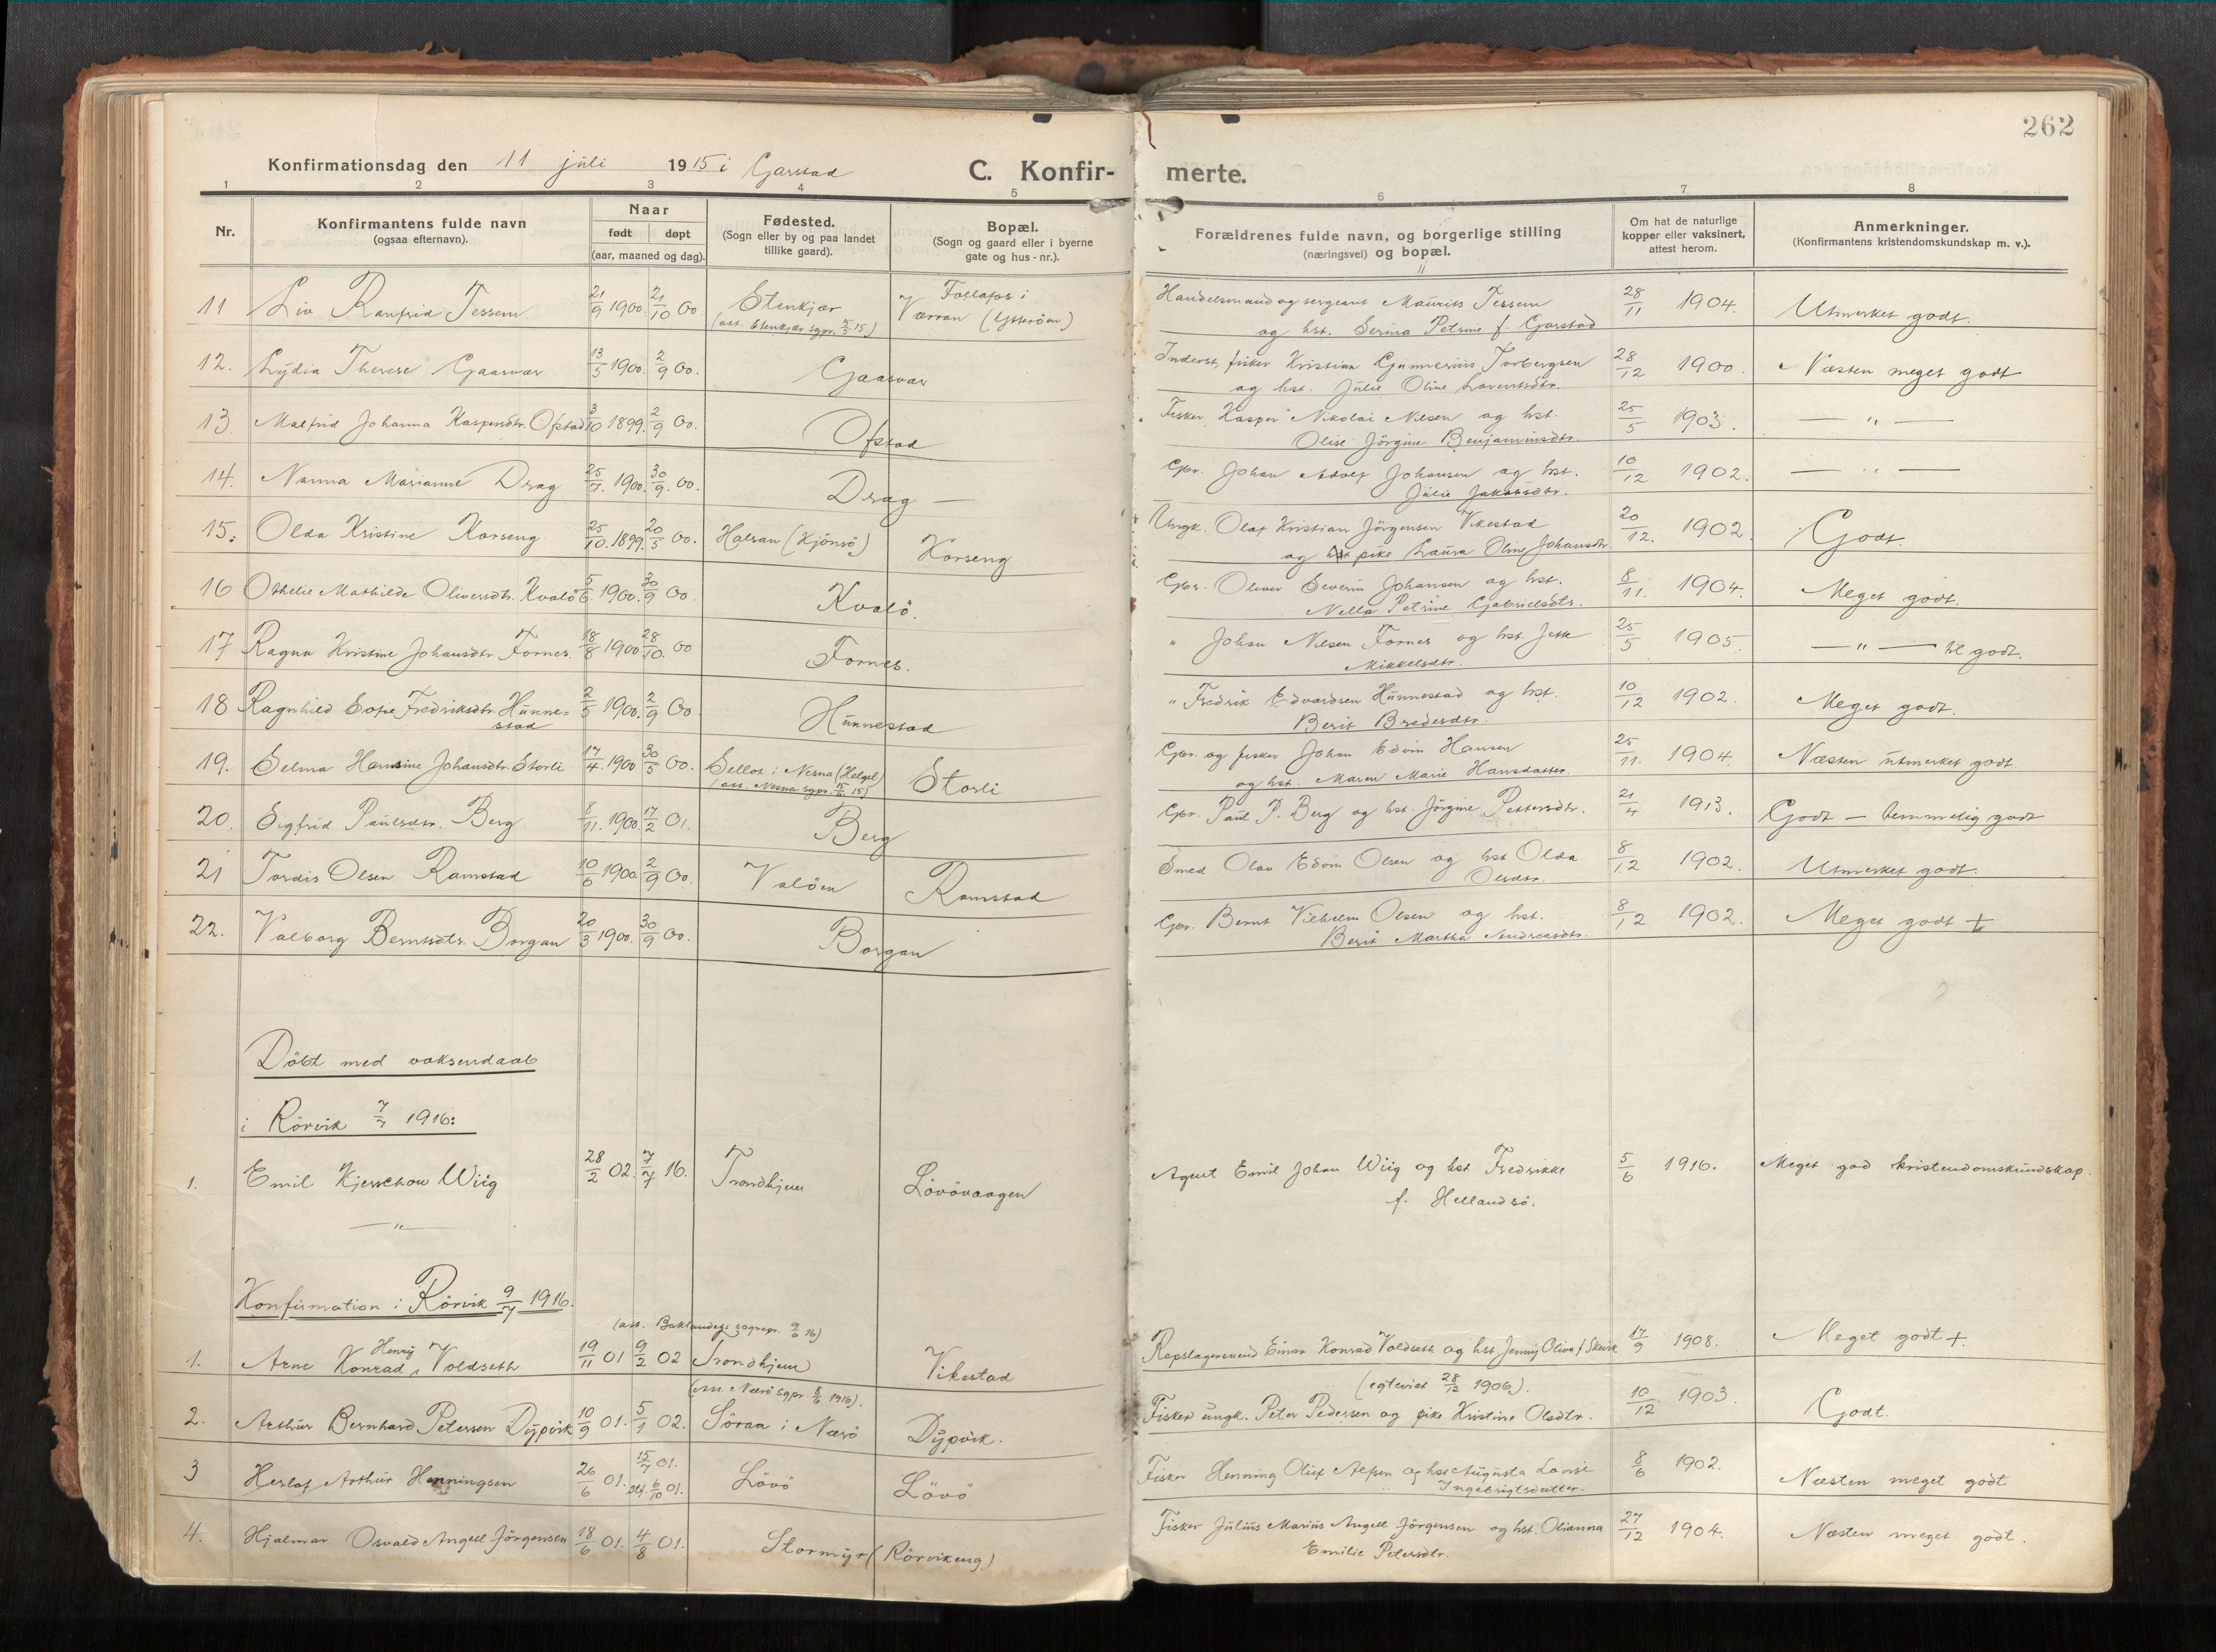 262
Konfirmationsdag den 11 juli 1915 i Garstad
C. Konfir-merte.
1 2 3 4 5 6 7 8
Nr.
Konfirmantens fulde navn
(ogsaa efternavn).
Naar
født døpt
(aar, maaned og dag).
Fødested.
(Sogn eller by og paa landet
tillike gaard).
Bopæl.
(Sogn og gaard eller i byerne
gate og hus-nr.).
Forældrenes fulde navn, og borgerlige stilling
(næringsvei) og bopæl.
Om hat de naturlige
kopper eller vaksinert,
attest herom.
Anmerkninger.
(Konfirmantens kristendomskundskap m. v.).
11 Liv Ranfrid Tessem 21/9 1900. 21/10 00. Stenkjær Follafos i Handelsmand og sergeant Maurits Tessem 28/11 1904. Utmerket godt.
(att. Stenkjær sgpr. 5/5 15) Værran (Ytterøen) og hst. Serina Petrine f. Garstad
12. Lydia Therese Gaasvær 13/5 1900. 2/9 00. Gaasvær Inderst, fisker Kristian Gunnerius Torbergsen 28/12 1900. Næsten meget godt
og hst. Julie Oline Lorentsdtr.
13. Malfrid Johanna Kaspersdtr. Ofstad 3/10 1899. 2/9 00. Ofstad Fisker Kasper Nikolai Nilsen og hst. 25/5 1903. — " —
Olise Jörgine Benjaminsdtr.
14. Nanna Marianne Drag 25/7. 1900. 30/9. 00. Drag — Gbr. Johan Adolf Johansen og hst. 10/12 1902. — " —
Julie Jakobsdtr.
15. Olda Kristine Korseng 25/10. 1899. 20/5 00. Halsan (Kjönsö) Korseng Ungk. Olaf Kristian Jörgensen Vikestad 20/12. 1902. Godt.
og pike Laura Oline Johansdtr.
16 Othelie Mathilde Oliversdtr. Kvalö 5/6. 1900. 30/9 00. Kvalö. Gbr. Oliver Severin Johansen og hst. 8/11. 1904. Meget godt.
Nella Petrine Gabrielsdtr.
17 Ragna Kristine Johansdtr Fornes. 18/8 1900 28/10. 00 Fornes. " Johan Nilsen Fornes og hst. Jette 25/5 1905. — " — til godt.
Mikkelsdtr.
18 Ragnhild Sofie Fredriksdtr. Hunne= 2/5 1900. 2/9 00. Hunnestad " Fredrik Edvardsen Hunnestad og hst. 10/12 1902. Meget godt.
stad Berit Bredersdtr.
19. Selma Hansine Johansdtr. Storli 17/4. 1900 30/5 00. Sellot i Nesna (Helgel) Storli Gbr. og fisker Johan Edvin Hansen 25/11. 1904. Næsten utmerket godt.
(att. Nesna sgpr. 15) og hst. Maren Marie Hansdatter.
20. Sigfrid Paulsdtr. Berg 8/11. 1900. 17/2 01. Berg Gbr. Paul P. Berg og hst. Jörgine Pettersdtr. 21/4 1913. Godt — temmelig godt
21 Tordis Olsen Ramstad 10/6 1900. 2/9 00. Valöen Ramstad Smed Olav Edvin Olsen og hst Olda 8/12 1902. Utmerket godt.
Olsdtr.
22. Valborg Berntsdtr. Borgan 20/3 1900. 30/9 00. Borgan Gbr. Bernt Vilhelm Olsen og hst. 8/12 1902. Meget godt +
Berit Martha Andreasdtr.
Döbt med voksendaab
i Rörvik 7/7 1916:
1. Emil Kjerschow Wiig 28/2 02. 7/7 16. Trondhjem Lövövaagen Agent Emil Johan Wiig og hst Fredrikke 5/6 1916. Meget god kristendomskundskap.
f. Hellandsö.
— " —
Konfirmation i Rörvik 9/7 1916.
(att. Baklandets sognepr. 9/6 16)
1. Arne Konrad Henry Voldseth 19/11 01 9/2 02 Trondhjem Vikestad Repslagersvend Einar Konrad Voldseth og hst. Jenny Oliva f. Skevik 17/9 1908. Meget godt +.
(att. Nærö sgpr. 8/6 1916). (egteviet 28/12 1906).
2. Arthur Bernhard Petersen Dypvik 10/9 01. 5/1 02. Söraa i Nærö Dypvik. Fisker ungk. Peter Pedersen og pike Kristine Olsdtr. 10/12 1903. Godt.
3 Herlof Arthur Henningsen 26/6 01. 15/7 01. 6/10 01. Lövö Lövö Fisker Henning Oluf Alfsen og hst Augusta Lovise 8/6 1902. Næsten meget godt
Ingebrigtsdatter.
4. Hjalmar Osvald Angell Jörgensen 18/6 01. 4/8 01. Stormyr (Rörvikeng) Fisker Julius Marius Angell Jörgensen og hst. Olianna 27/12 1904. Næsten meget godt.
Emilie Petersdtr.